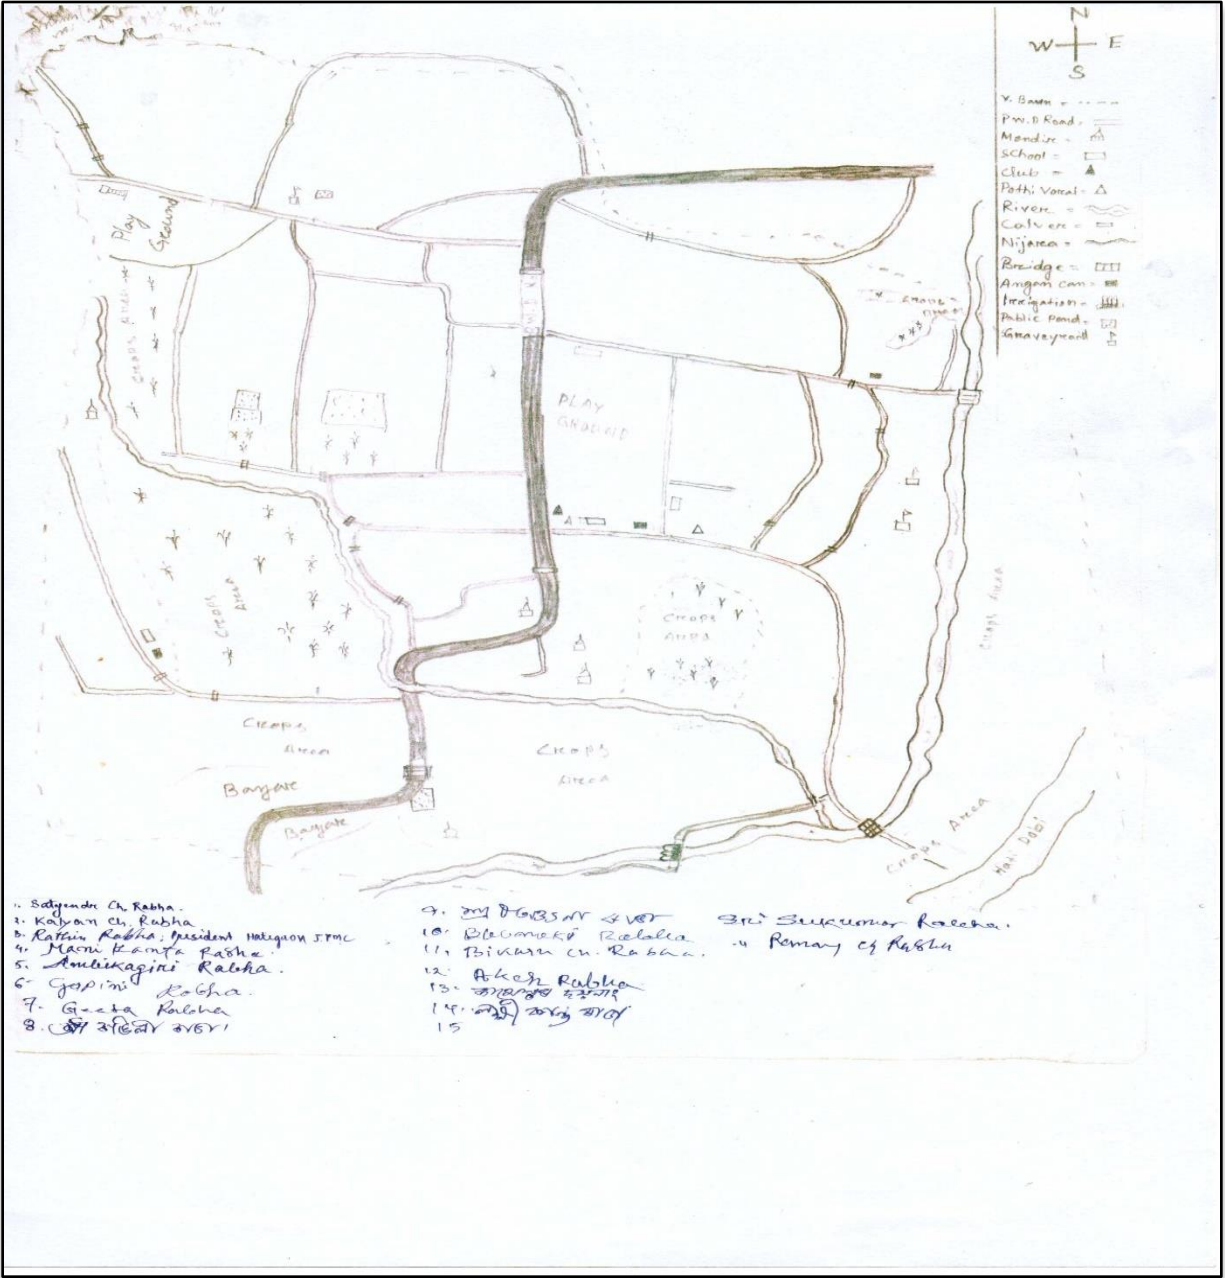 N
W E
S
V. Baun = - - - -
P.W.D Road =
Mandir =
School =
Club =
Pothi Voral =
River =
Calver =
Nijarea =
Bridge =
Angan can =
Irrigation =
Public Pond =
Graveyard
Play
Ground
Crops Area
PLAY
GROUND
Crops
Area
Crops
Area
Crops Area
Crops
Area
Crops
Area
Bangare
Bangare
Crops Area
Hati Dobi
1. Satyendr Ch. Rabha.
2. Kalyan Ch. Rabha
3. Rathin Rabha, President Hatigaon JFMC
4. Mani Kanta Rabha
5. Ambikagiri Rabha.
6. Gopini Rabha.
7. Geeta Rabha
8.
9.
10. Rabha
11. Bikash Ch. Rabha.
12. Akesh Rabha
13.
14.
15
Sri Sukumar Rabha.
" Ramany ch Rabha